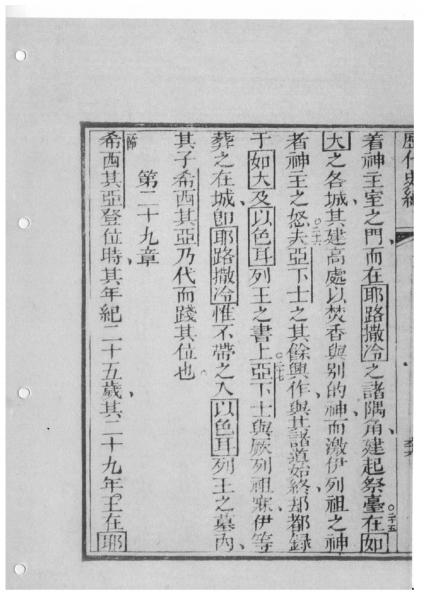 歷代史紀
着神主室之門而在耶路撒冷之諸隅角建起祭臺在如
二十五
大之各城其建高處以焚香與别的神而激伊列祖之神
者神主之怒夫亞下士之其餘興作與其諸道始終却都錄
二十六
于如大及以色耳列王之書上亞下士與厥列祖寐伊等
二十七
葬之在城卽耶路撒冷惟不帶之入以色耳列王之墓內
其子希西其亞乃代而踐其位也
第二十九章
一節
希西其亞登位時其年紀二十五歲其二十九年王在耶